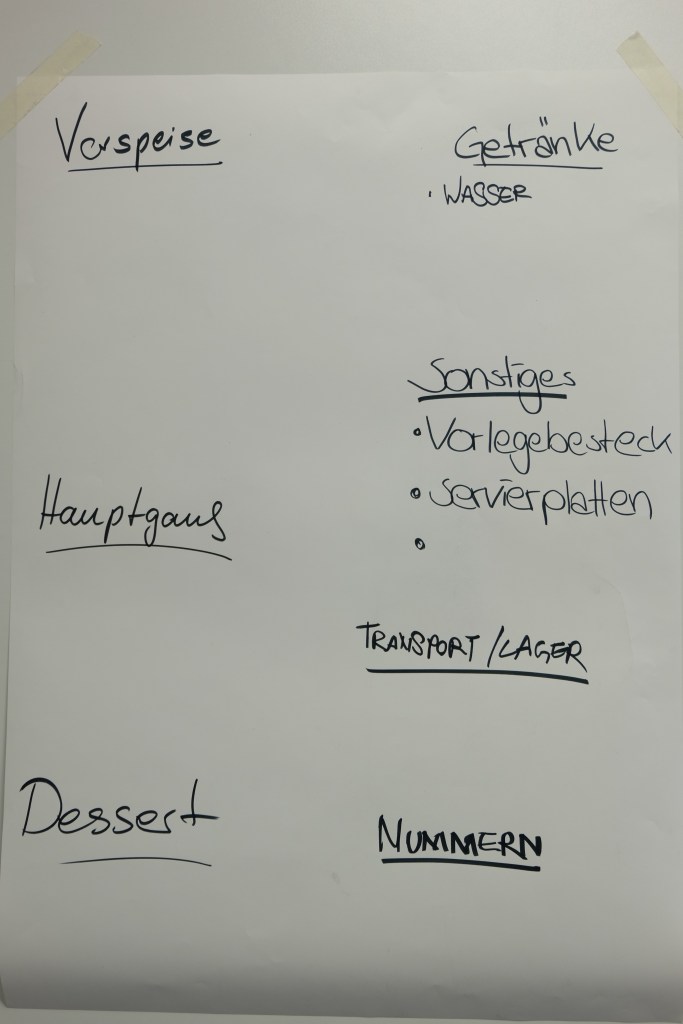 Vorspeise
Hauptgang
Dessert
Getränke
· WASSER
Sonstiges
• Vorlegebesteck
• Servierplatten
•
TRANSPORT/LAGER
NUMMERN